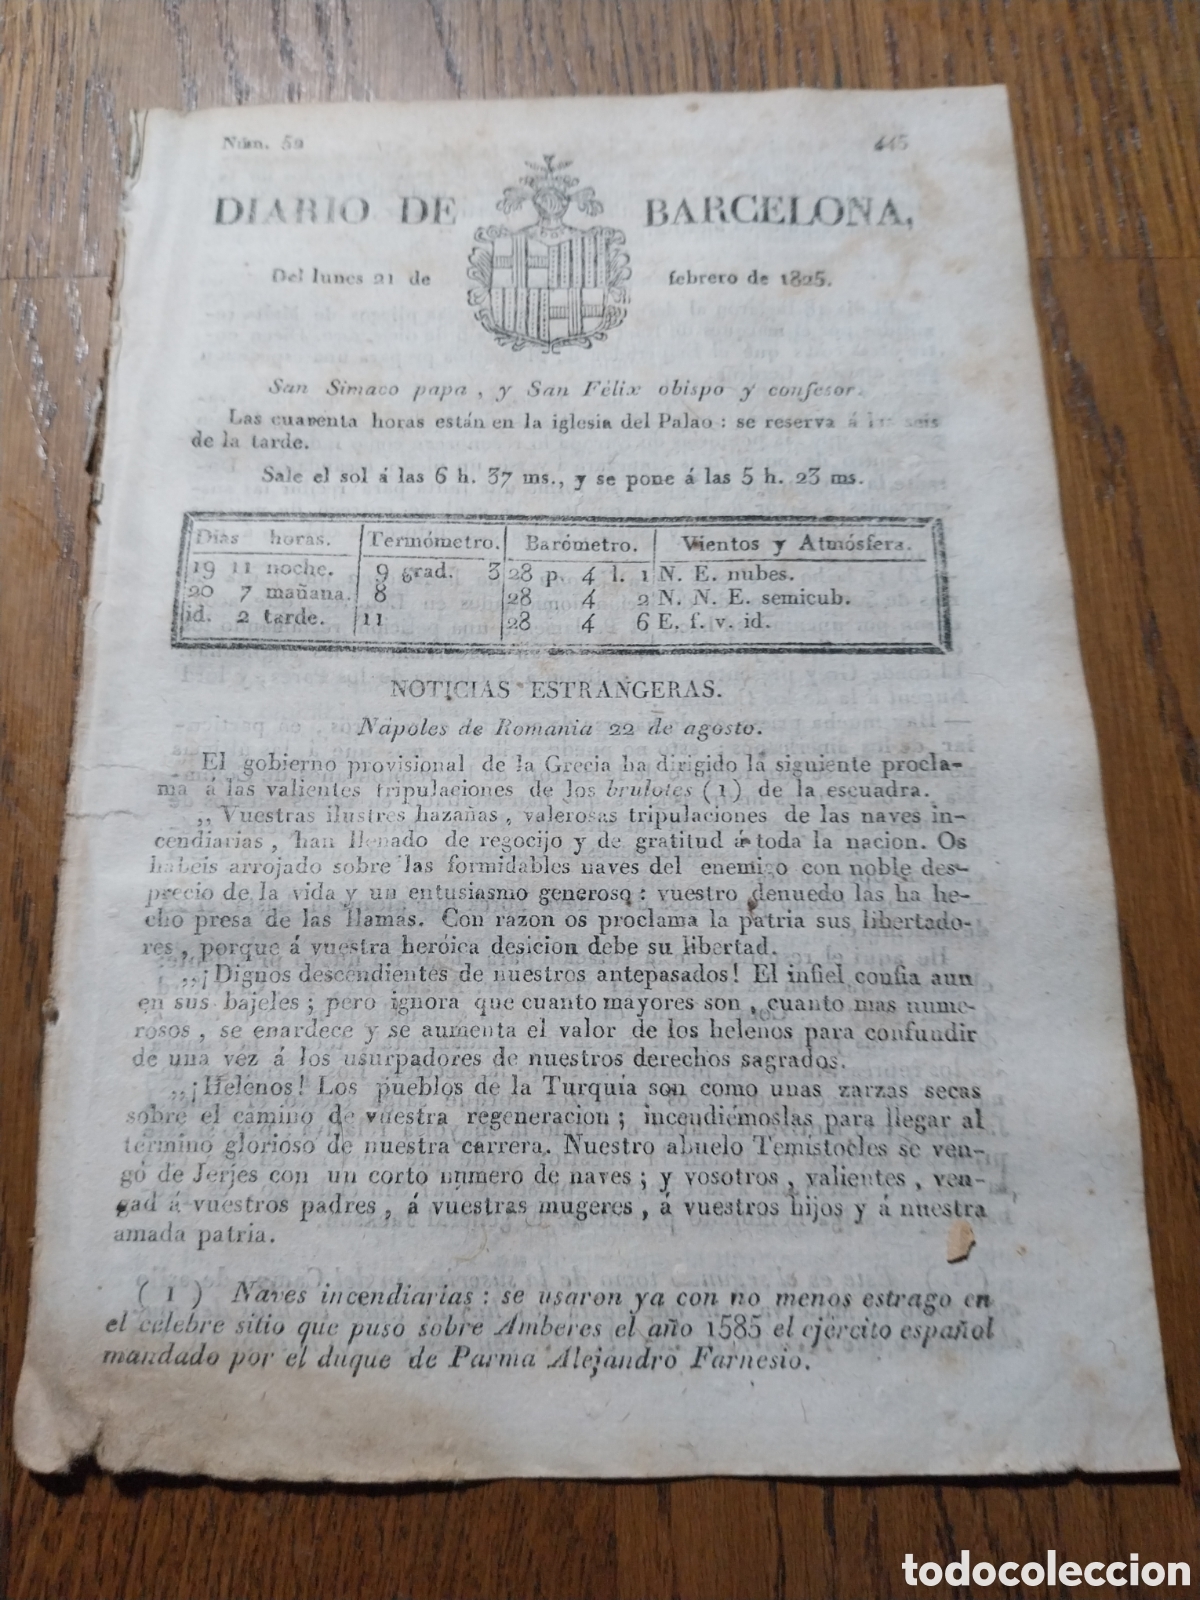 Núm. 52 445
DIARIO DE BARCELONA,
Del lunes 21 de febrero de 1825.
San Simaco papa, y San Félix obispo y confesor.
Las cuarenta horas están en la iglesia del Palao: se reserva á las seis
de la tarde.
Sale el sol á las 6 h. 37 ms., y se pone á las 5 h. 23 ms.
Dias horas. Termómetro. Barómetro. Vientos y Atmósfera.
19 11 noche. 9 grad. 3 28 p. 4 l. 1 N. E. nubes.
20 7 mañana. 8 28 4 2 N. N. E. semicub.
id. 2 tarde. 11 28 4 6 E. f. v. id.
NOTICIAS ESTRANGERAS.
Nápoles de Romania 22 de agosto.
El gobierno provisional de la Grecia ha dirigido la siguiente procla-
ma á las valientes tripulaciones de los brulotes (1) de la escuadra.
„Vuestras ilustres hazañas, valerosas tripulaciones de las naves in-
cendiarias, han llenado de regocijo y de gratitud á toda la nacion. Os
habeis arrojado sobre las formidables naves del enemigo con noble des-
precio de la vida y un entusiasmo generoso: vuestro denuedo las ha he-
cho presa de las llamas. Con razon os proclama la patria sus libertado-
res, porque á vuestra heróica desicion debe su libertad.
„¡Dignos descendientes de nuestros antepasados! El infiel confia aun
en sus bajeles; pero ignora que cuanto mayores son, cuanto mas nume-
rosos, se enardece y se aumenta el valor de los helenos para confundir
de una vez á los usurpadores de nuestros derechos sagrados.
„¡Helenos! Los pueblos de la Turquia son como unas zarzas secas
sobre el camino de vuestra regeneracion; incendiémoslas para llegar al
termino glorioso de nuestra carrera. Nuestro abuelo Temistocles se ven-
gó de Jerjes con un corto numero de naves; y vosotros, valientes, ven-
gad á vuestros padres, á vuestras mugeres, á vuestros hijos y á nuestra
amada patria.
(1) Naves incendiarias: se usaron ya con no menos estrago en
el célebre sitio que puso sobre Amberes el año 1585 el ejército español
mandado por el duque de Parma Alejandro Farnesio.
todocoleccion